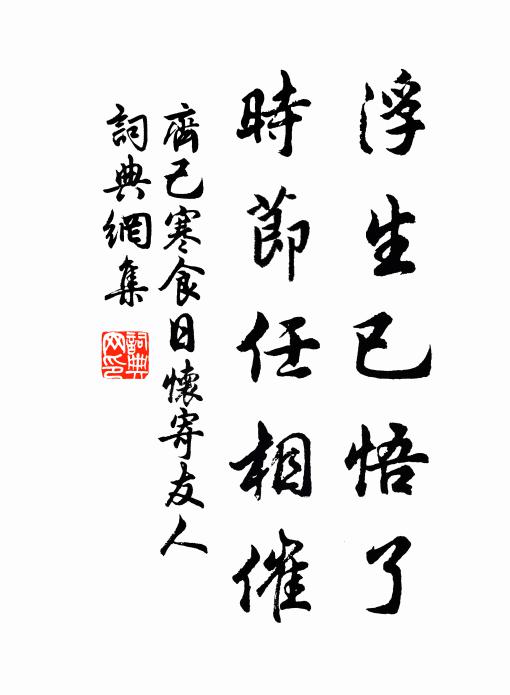 浮生已悟了
時節任相催
齊己寒食日懷寄友人
詞典網集
詞典網印